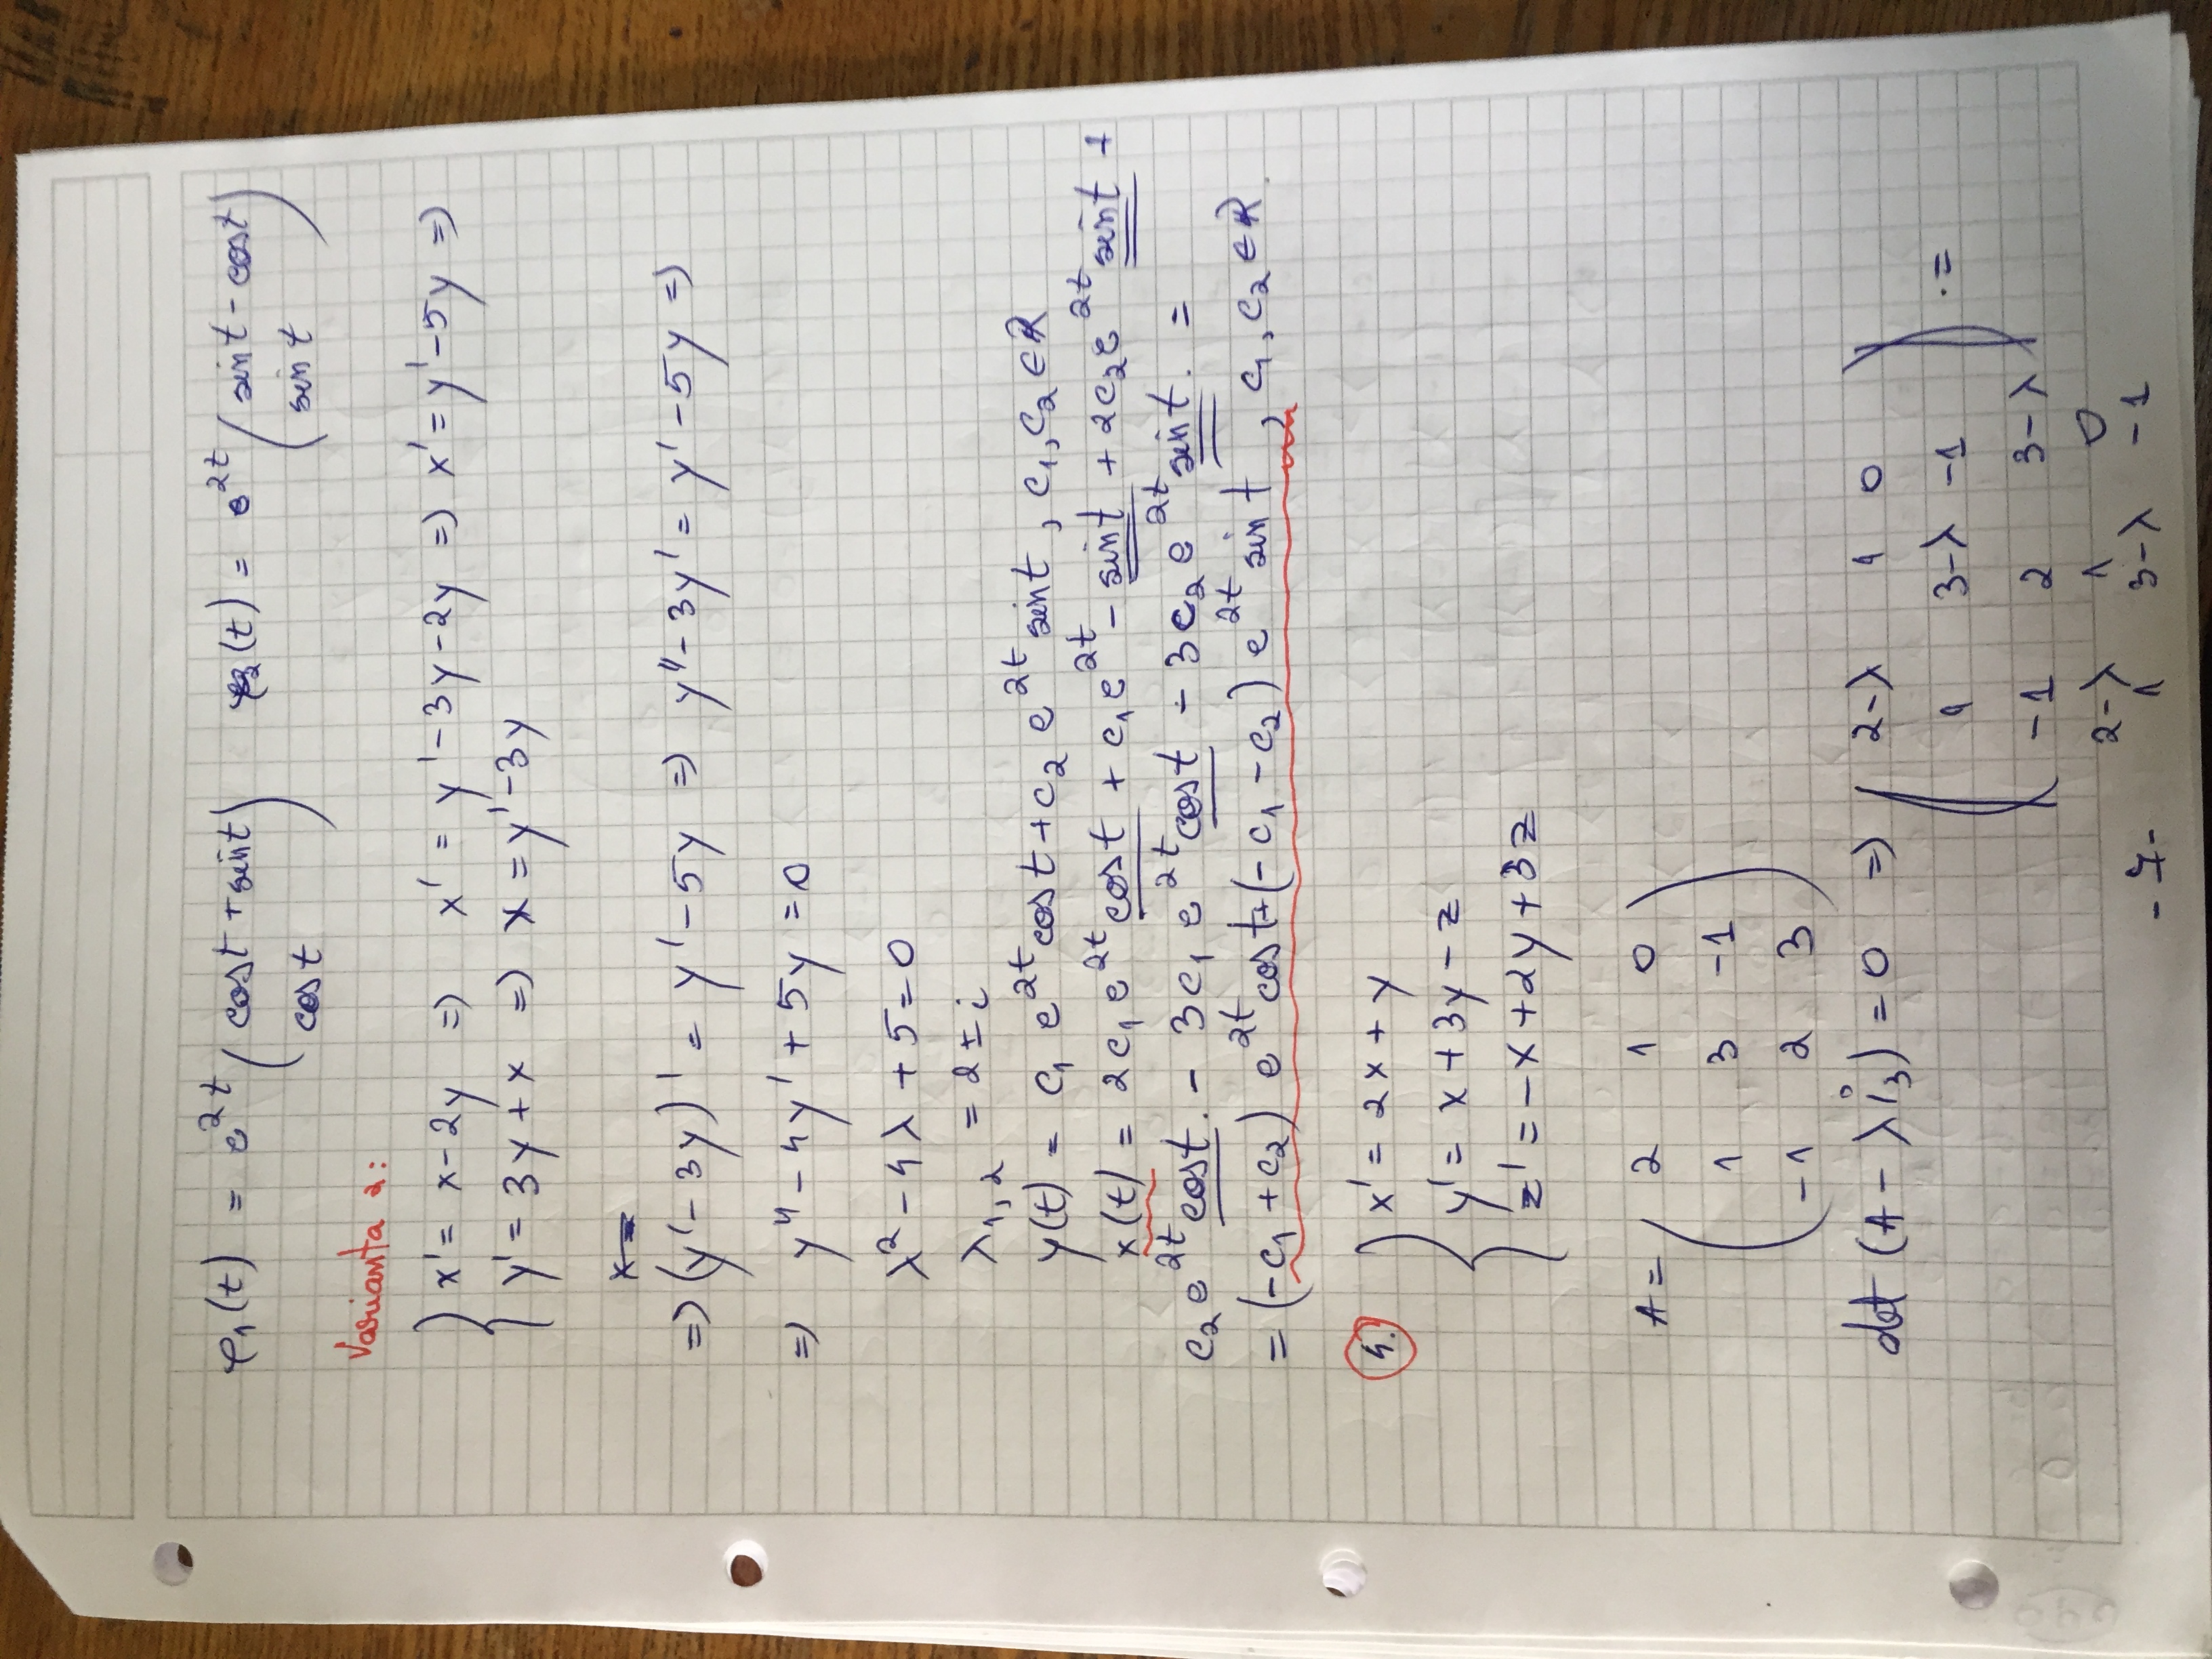 φ₁(t) = e^{2t} ( cost + sint      φ₂(t) = e^{2t} ( sint - cost
cost )      sint )
Varianta 2:
{ x' = x - 2y => x' = y' - 3y - 2y => x' = y' - 5y =>
y' = 3y + x => x = y' - 3y
x =
=> (y' - 3y)' = y' - 5y => y'' - 3y' = y' - 5y =>
=> y'' - 4y' + 5y = 0
λ² - 4λ + 5 = 0
λ₁,₂ = 2 ± i
y(t) = c₁ e^{2t} cost + c₂ e^{2t} sint , c₁, c₂ ∈ R
x(t) = 2c₁ e^{2t} cost + c₁ e^{2t} - sint + 2c₂ e^{2t} sint +
c₂ e^{2t} cost. - 3c₁ e^{2t} cost - 3c₂ e^{2t} sint. =
= (-c₁ + c₂) e^{2t} cost + (-c₁ - c₂) e^{2t} sint , c₁, c₂ ∈ R.
4. { x' = 2x + y
y' = x + 3y - z
z' = -x + 2y + 3z
A = ( 2 1 0
1 3 -1
-1 2 3 )
det (A - λi₃) = 0 => | 2-λ 1 0
1 3-λ -1 | . =
-1 2 3-λ
2-λ 1 0
1 3-λ -1
- 7 -